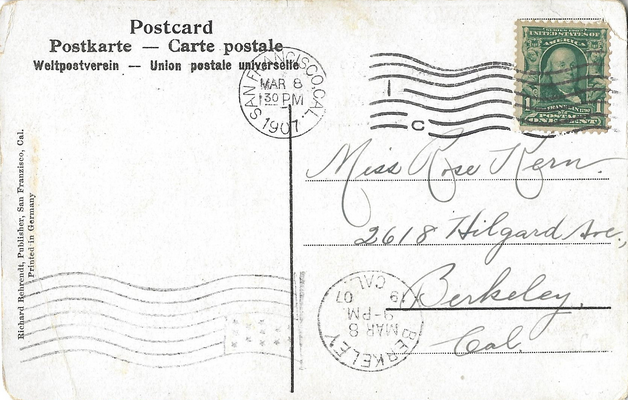 Postcard
Postkarte — Carte postale
Weltpostverein — Union postale universelle
SAN FRANCISCO, CAL.
MAR 8
1 30 PM
1907
1
C
UNITED STATES OF
AMERICA
FRANKLIN
1 1
POSTAGE
ONE CENT
Miss Rose Kern.
2618 Hilgard Ave,
Berkeley,
Cal.
BERKELEY
MAR 8
9-PM
19 07
CAL.
Richard Behrendt, Publisher, San Franzisco, Cal.
Printed in Germany